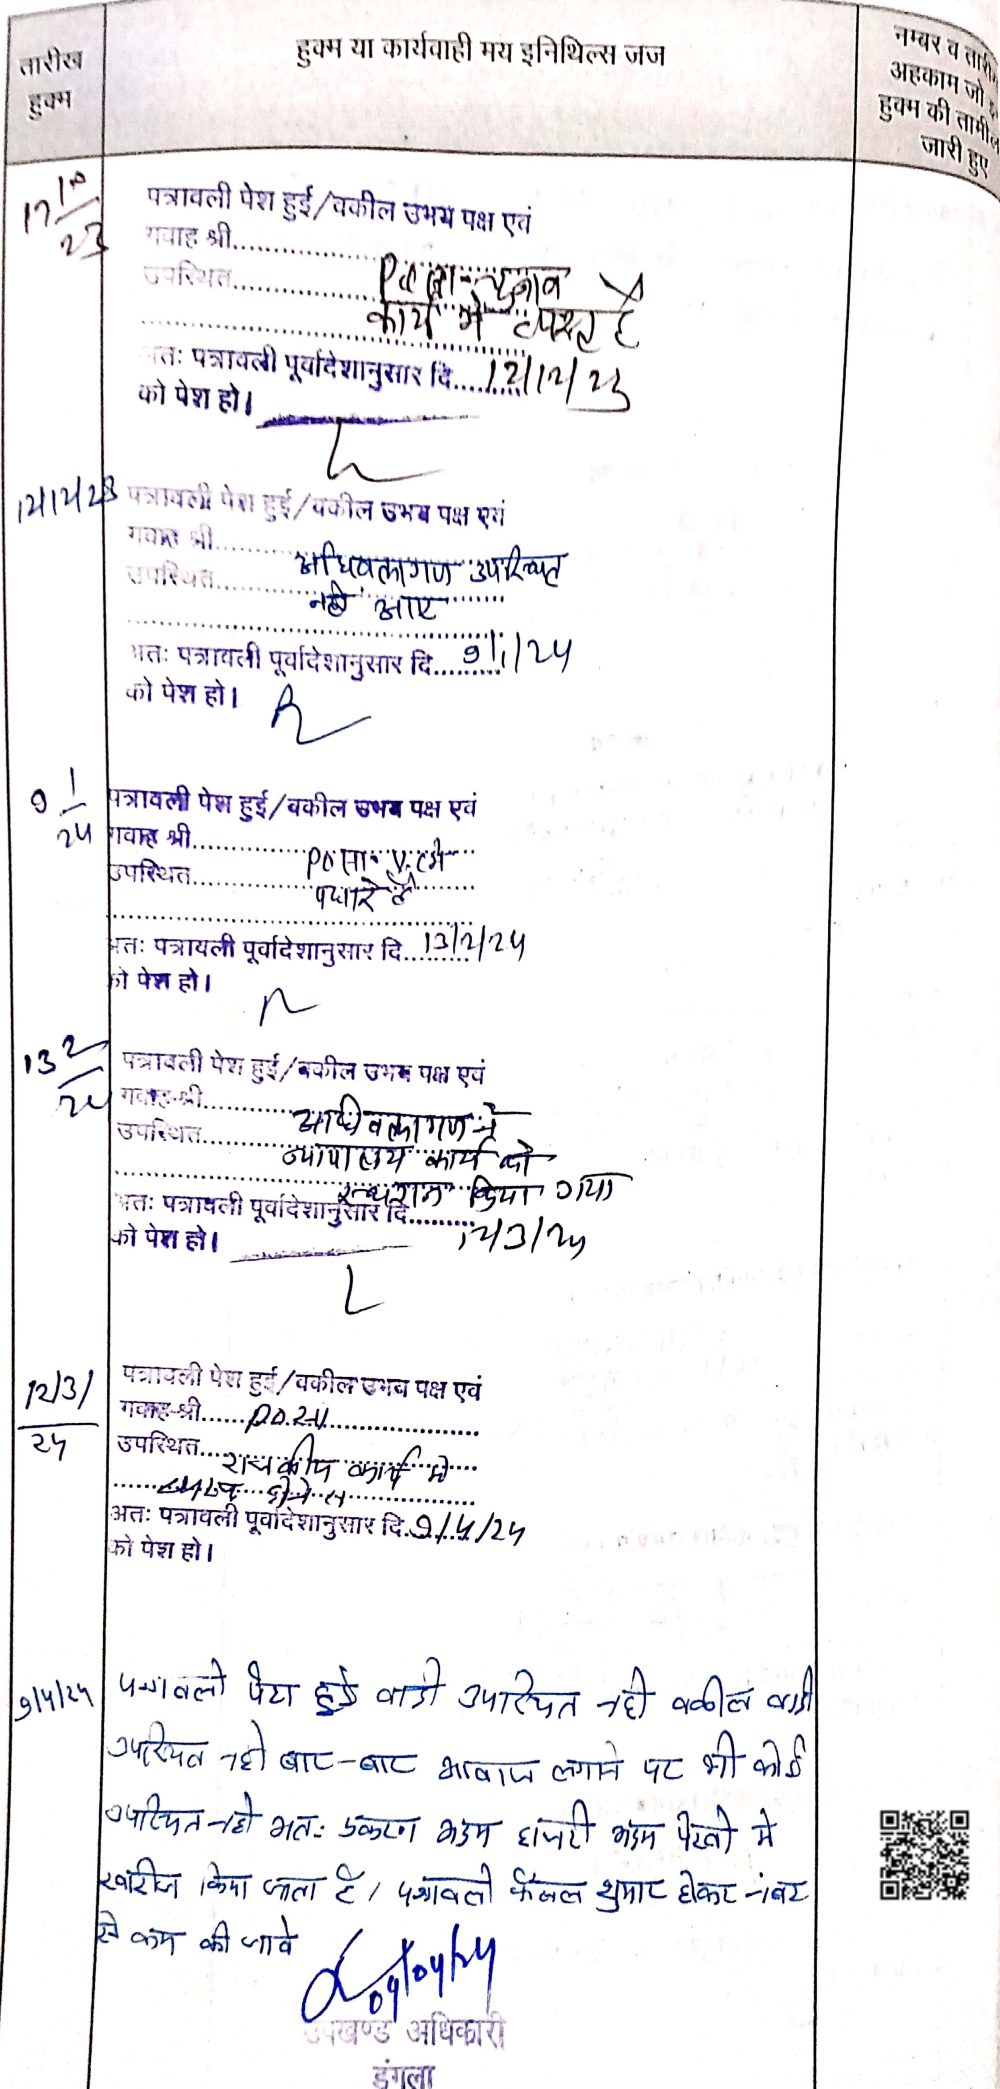 तारीख
हुक्म
हुक्म या कार्यवाही मय इनिथिल्स जज
नम्बर व तारी
अहकाम जो इ
हुक्म की तामील
जारी हुए
17 10/23
पत्रावली पेश हुई/वकील उभय पक्ष एवं
गवाह श्री
उपस्थित
चुनाव
कार्य में व्यस्त है
अतः पत्रावली पूर्वादेशानुसार दि. 12/12/23
को पेश हो।
12/12/23
पत्रावली पेश हुई/वकील उभय पक्ष एवं
गवाह श्री
उपस्थित अधिवक्तागण उपस्थित
नही आए
अतः पत्रावली पूर्वादेशानुसार दि. 9/1/24
को पेश हो।
9 1/24
पत्रावली पेश हुई/वकील उभय पक्ष एवं
गवाह श्री
उपस्थित
पधारे है
अतः पत्रावली पूर्वादेशानुसार दि. 13/2/24
को पेश हो।
13 2/24
पत्रावली पेश हुई/वकील उभय पक्ष एवं
गवाह श्री
उपस्थित अधिवक्तागण ने
न्यायालय कार्य को
स्थगन किया गया
अतः पत्रावली पूर्वादेशानुसार दि.
को पेश हो। 12/3/24
12/3/24
पत्रावली पेश हुई/वकील उभय पक्ष एवं
गवाह श्री
उपस्थित राजकीय कार्य मे
व्यस्त होने से
अतः पत्रावली पूर्वादेशानुसार दि. 9/4/24
को पेश हो।
9/4/24
पत्रावली पेश हुई वादी उपस्थित नही वकील वादी
उपस्थित नही बार-बार आवाज लगाने पर भी कोई
उपस्थित नही अतः प्रकरण अदम हाजरी अदम पेरवी मे
खारीज किया जाता है। पत्रावली फैसल शुमार होकर नंबर
से कम की जावे
09/04/24
उपखण्ड अधिकारी
डूंगला